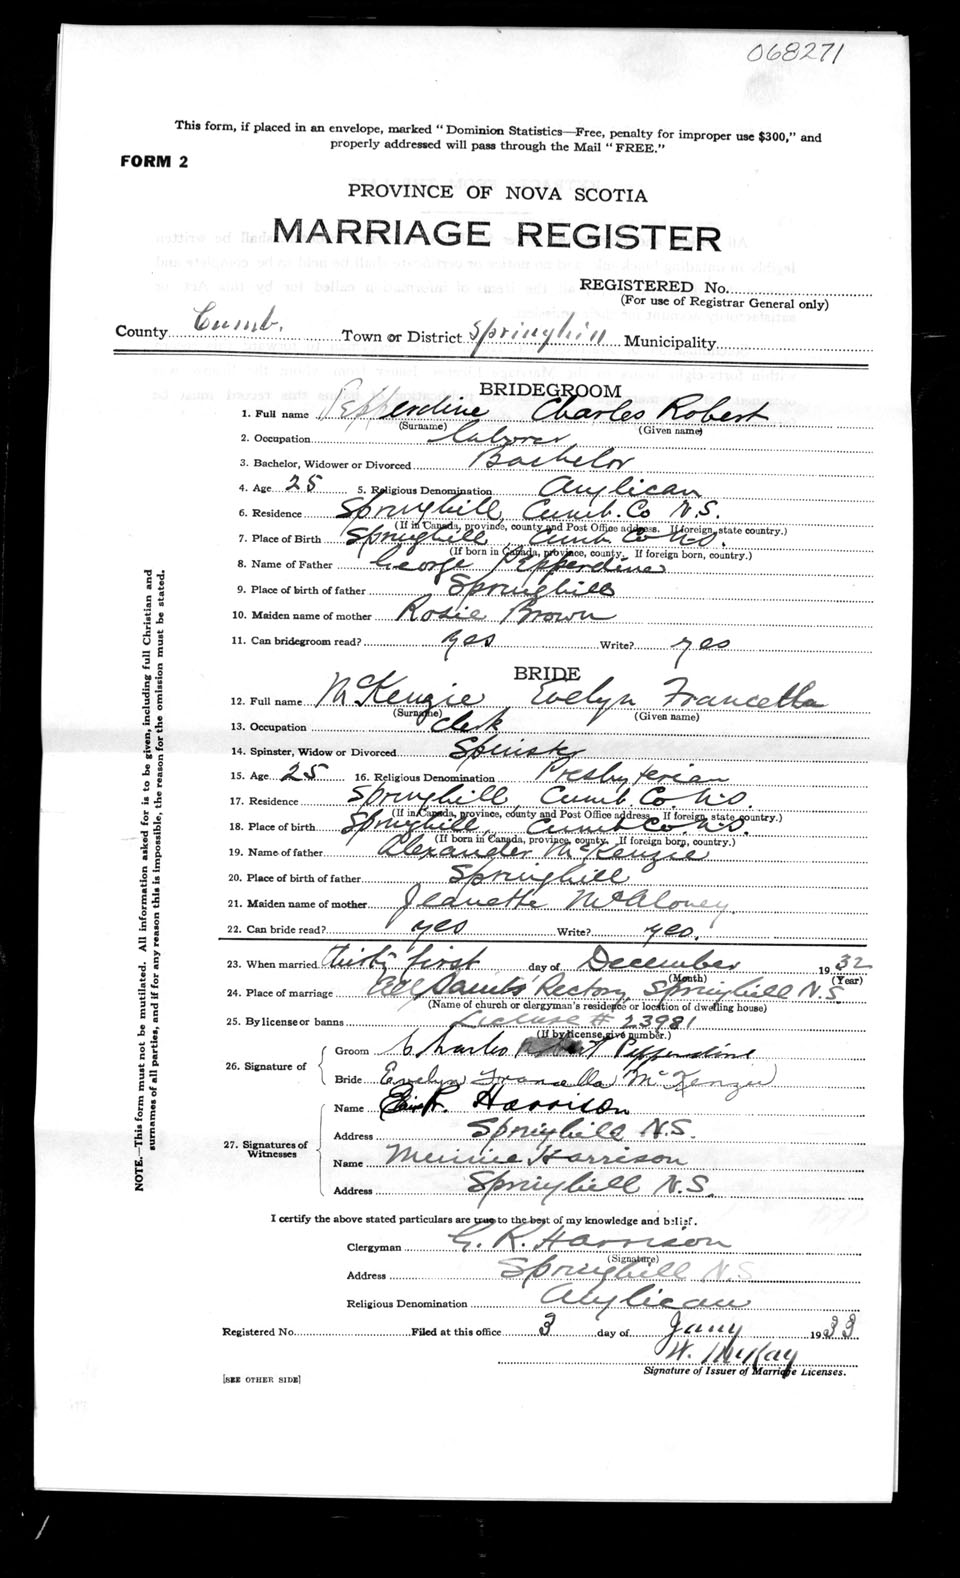 068271
This form, if placed in an envelope, marked "Dominion Statistics—Free, penalty for improper use $300," and
properly addressed will pass through the Mail "FREE."
FORM 2
PROVINCE OF NOVA SCOTIA
MARRIAGE REGISTER
REGISTERED No.
(For use of Registrar General only)
County Cumb. Town or District Springhill Municipality
BRIDEGROOM
1. Full name Pepperdine Charles Robert
(Surname) (Given name)
2. Occupation laborer
3. Bachelor, Widower or Divorced Bachelor
4. Age 25 5. Religious Denomination Anglican
6. Residence Springhill, Cumb. Co N.S.
(If in Canada, province, county and Post Office address. If foreign, state country.)
7. Place of Birth Springhill Cumb Co N.S.
(If born in Canada, province, county. If foreign born, country.)
8. Name of Father George Pepperdine
9. Place of birth of father Springhill
10. Maiden name of mother Rosie Brown
11. Can bridegroom read? yes Write? yes
BRIDE
12. Full name McKenzie Evelyn Francella
(Surname) (Given name)
13. Occupation Clerk
14. Spinster, Widow or Divorced Spinster
15. Age 25 16. Religious Denomination Presbyterian
17. Residence Springhill, Cumb. Co. N.S.
(If in Canada, province, county and Post Office address. If foreign, state country.)
18. Place of birth Springhill, Cumb Co. N.S.
(If born in Canada, province, county. If foreign born, country.)
19. Name of father Alexander McKenzie
20. Place of birth of father Springhill
21. Maiden name of mother Jeanette McAloney
22. Can bride read? yes Write? yes.
23. When married thirty first day of December 1932
(Month) (Year)
24. Place of marriage All Saints Rectory, Springhill N.S.
(Name of church or clergyman's residence or location of dwelling house)
25. By license or banns License # 23981
(If by license, give number.)
26. Signature of
Groom Charles Robert Pepperdine
Bride Evelyn Francella McKenzie
27. Signatures of Witnesses
Name R. Harrison
Address Springhill N.S.
Name Minnie Harrison
Address Springhill N.S.
I certify the above stated particulars are true to the best of my knowledge and belief.
Clergyman G. R. Harrison
(Signature)
Address Springhill N.S.
Religious Denomination Anglican
Registered No. Filed at this office 3 day of Jany 1933
W. McKay
Signature of Issuer of Marriage Licenses.
[SEE OTHER SIDE]
NOTE.—This form must not be mutilated. All information asked for is to be given, including full Christian and
surnames of all parties, and if for any reason this is impossible, the reason for the omission must be stated.